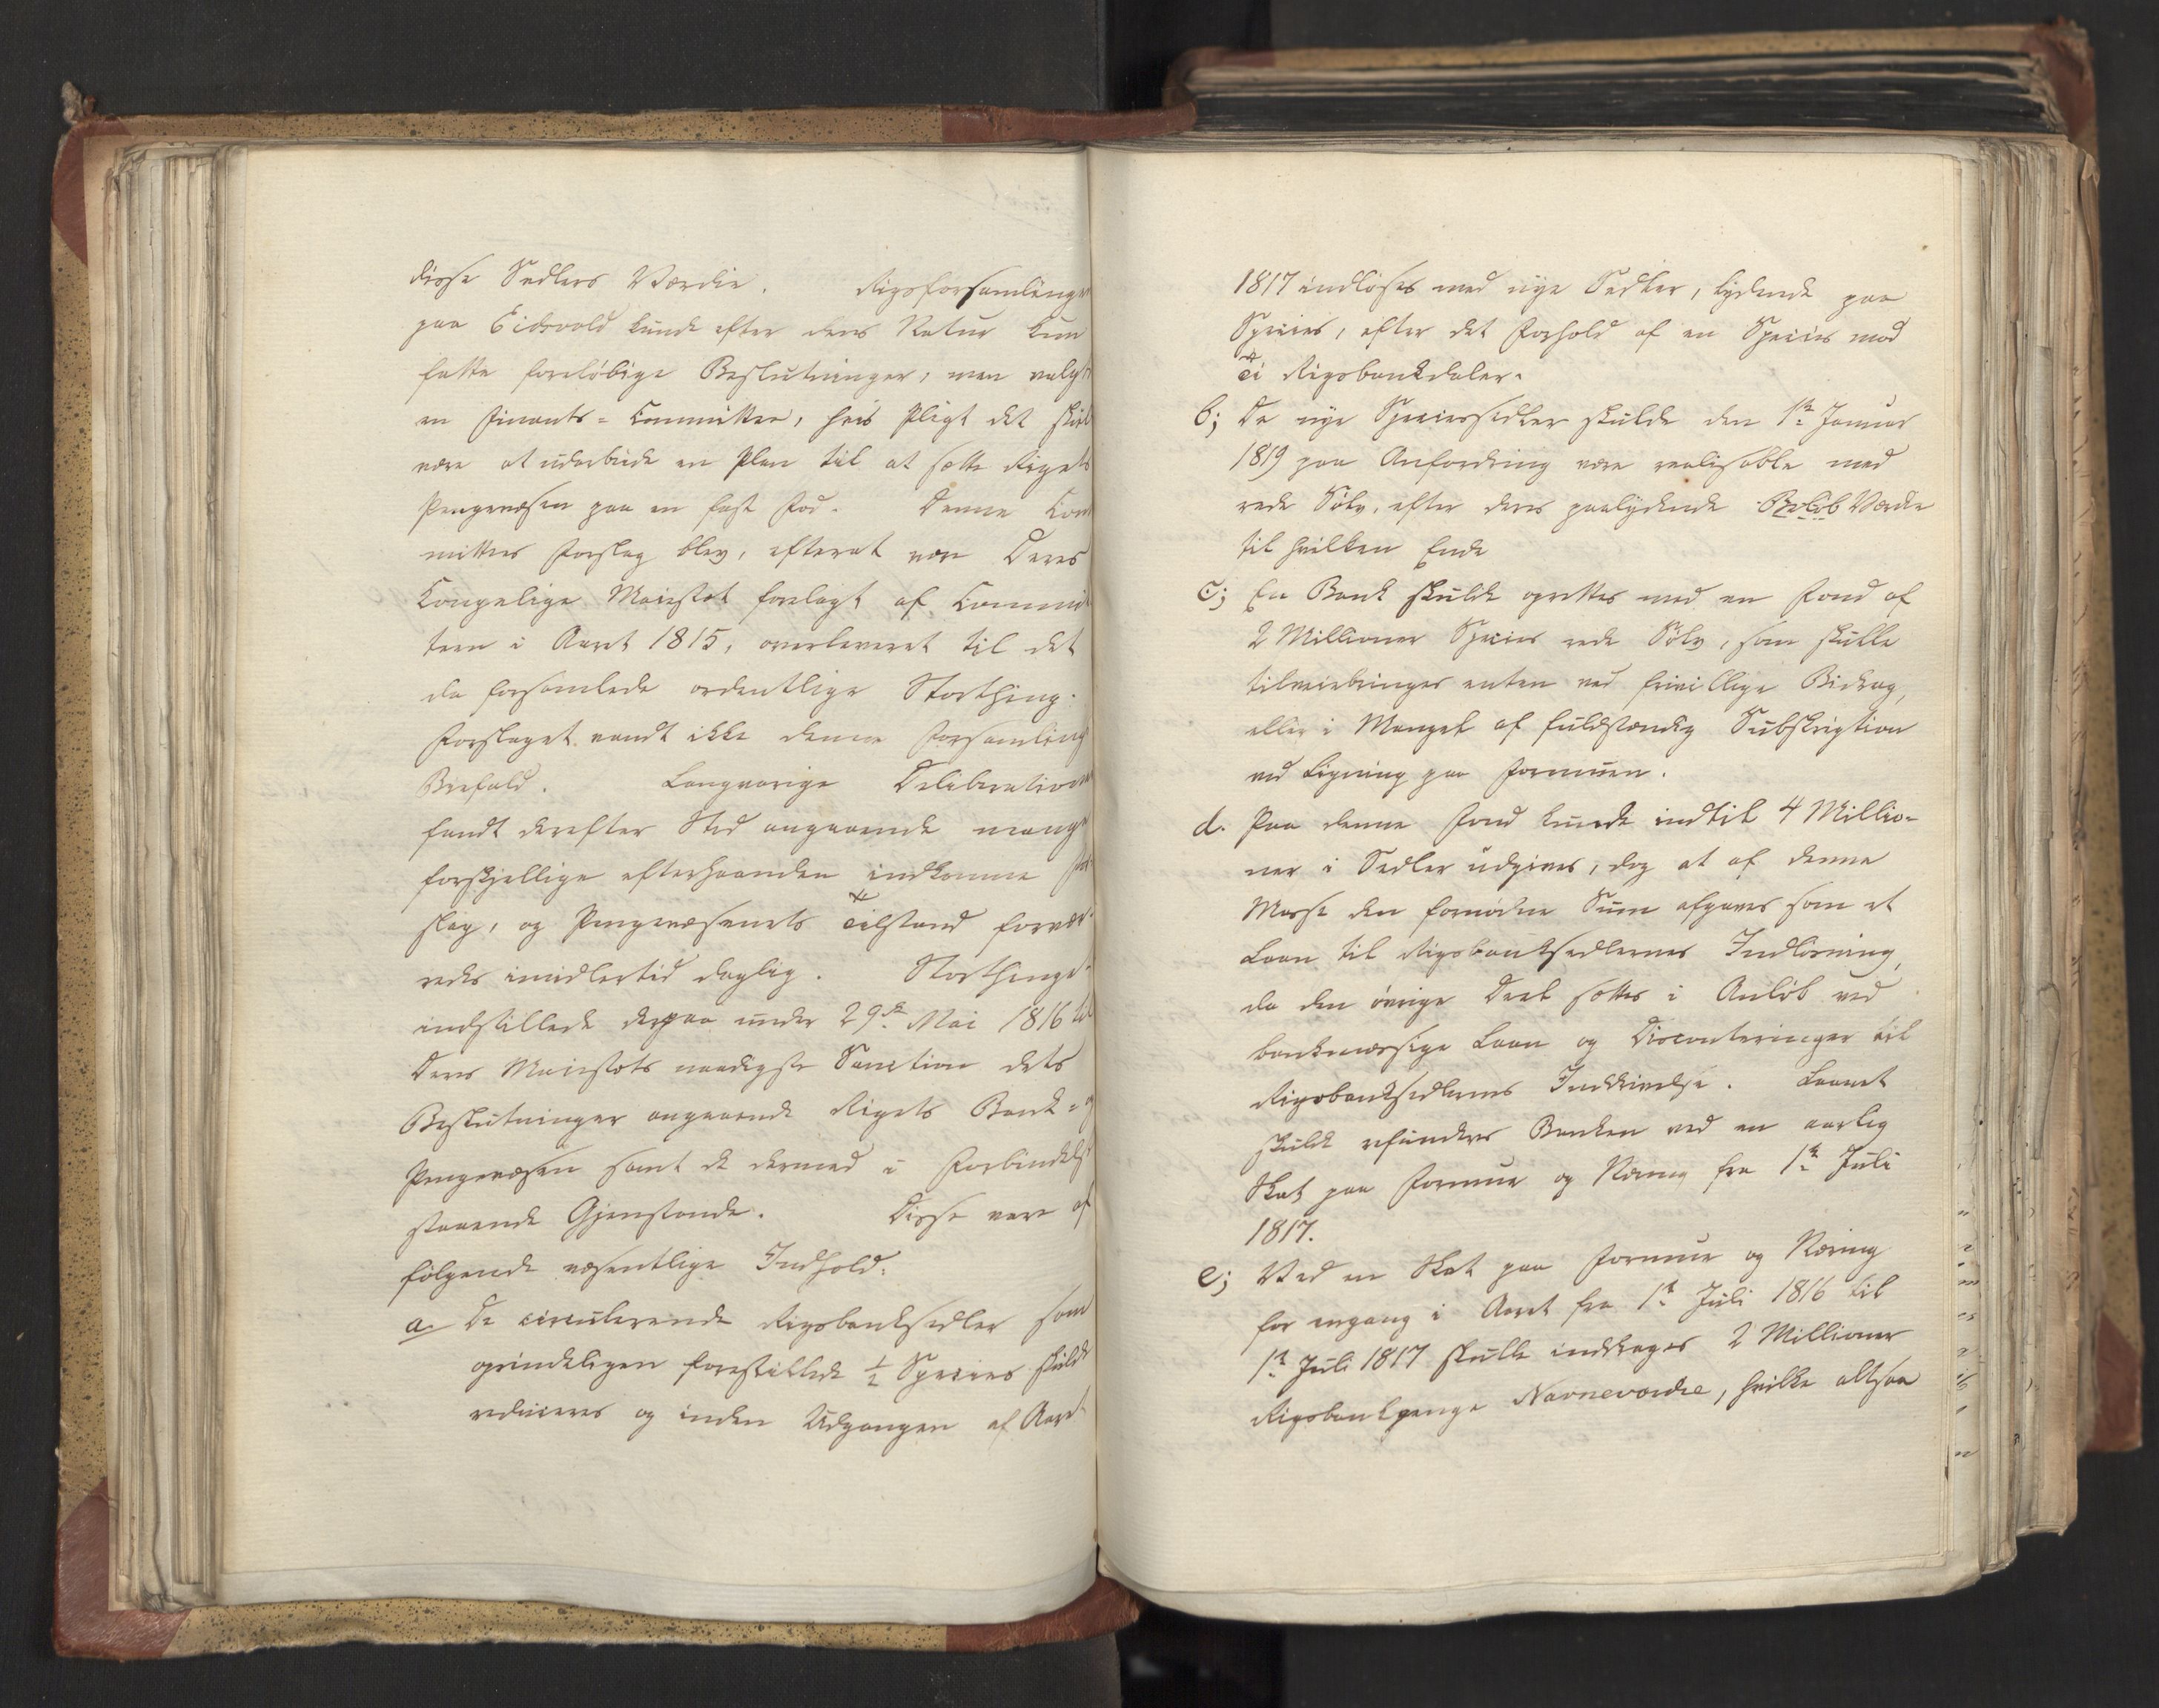 disse Sedlers Værdie. Rigsforsamlingen
paa Eidsvold kunde efter dens Natur kun
fatte foreløbige Beslutninger, men valgte
en Finants-Committee, hvis Pligt det skul
være at udarbeide en Plan til at sætte Rigets
Pengevæsen paa en fast Fod. Denne Com
mittees Forslag blev, efterat være Deres
Kongelige Majestæt forelagt af Commit
teen i Aaret 1815, overleveret til det
da forsamlede ordentlige Storthing.
Forslaget vandt ikke denne Forsamlings
Biefald. Langvarige Deliberationer
fandt derefter Sted angaaende mange
forskjellige efterhaanden indkomne For
slag, og Pengevæsenets Tilstand forvær-
redes imidlertid daglig. Storthinget
indstillede derpaa under 29de Mai 1816 til
Deres Majestæts naadigste Sanction dets
Beslutninger angaaende Rigets Bank- og
Pengevæsen samt de dermed i Forbindelse
staaende Gjenstande. Disse vare af
følgende væsentlige Indhold:
a. De circulerende Rigsbanksedler som
oprindeligen forestillede ½ Species skulde
reduceres og inden Udgangen af Aaret
1817 indløses med nye Sedler, lydende paa
Species, efter det Forhold af en Species mod
Ti Rigsbankdaler.
b; De nye Speciessedler skulde den 1ste Januar
1819 paa Anfordring være realisable med
rede Sølv, efter deres paalydende Beløb Værdie
til hvilken Ende
c; En Bank skulde oprettes med en Fond af
2 Millioner Species rede Sølv, som skulle
tilveiebringes enten ved frivillige Bidrag,
eller i Mangel af fuldstændig Subskription
ved Ligning paa Formuen.
d. Paa denne Fond kunde indtil 4 Millio-
ner i Sedler udgives, dog at af denne
Masse den fornødne Sum afgaves som et
Laan til Rigsbanksedlernes Indløsning,
da den øvrige Deel sættes i Omløb ved
bankmæssige Laan og Disconteringer til
Rigsbanksedlernes Inddrivelse. Laanet
skulde refunderes Banken ved en aarlig
Skat paa Formue og Næring fra 1ste Juli
1817.
e; Ved en Skat paa Formue og Næring
for engang i Aaret fra 1ste Juli 1816 til
1ste Juli 1817 skulle inddrages 2 Millioner
Rigsbankpenge Navneværdie, hvilke altsaa